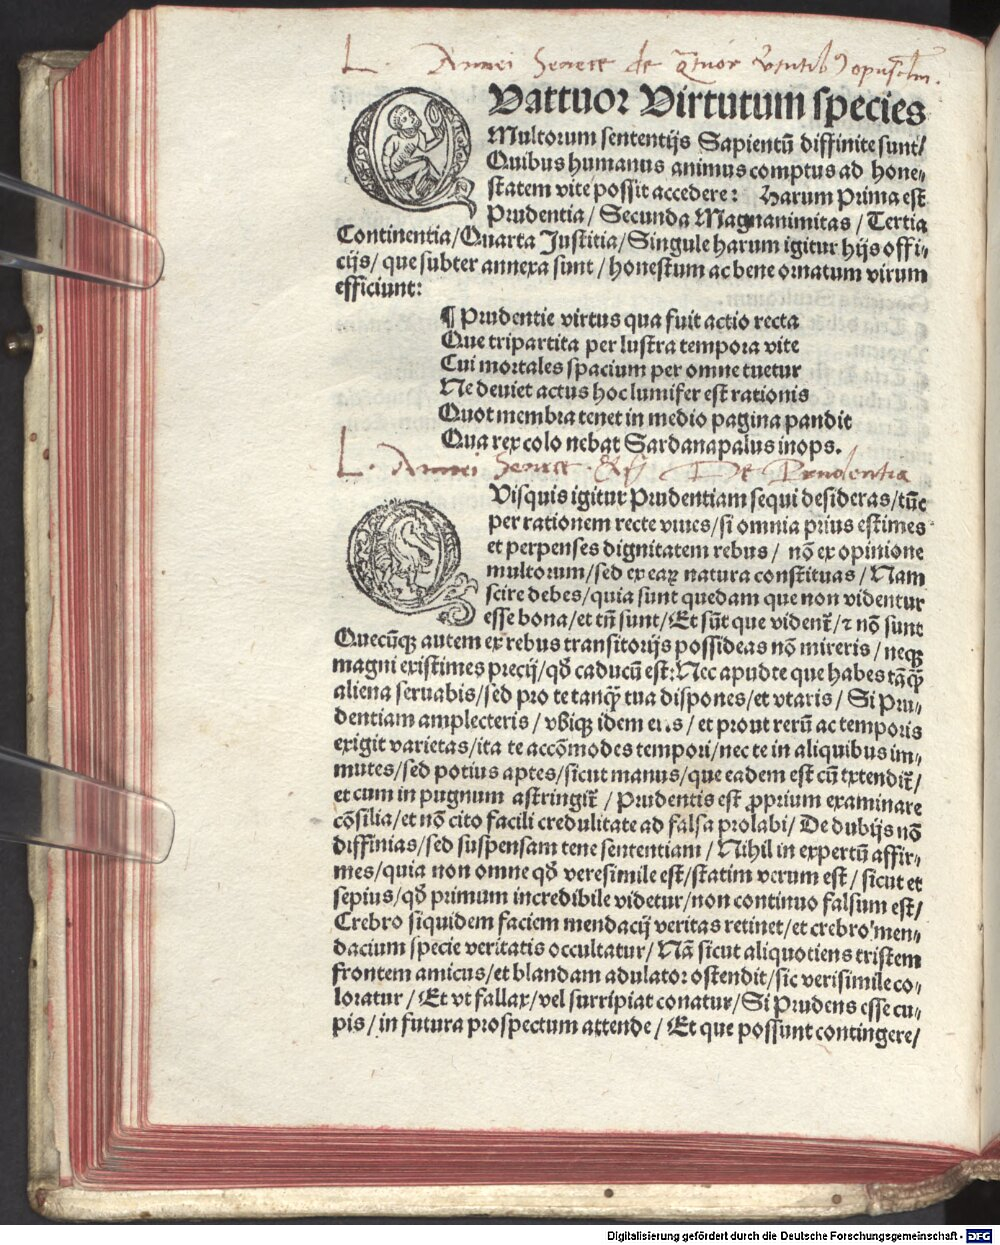 L. Annei Senece de q̃tuor v̓tutib9 opuscl̃m.
QVattuor Virtutum species
Multorum sententijs Sapientũ diffinite sunt/
Quibus humanus animus comptus ad hone⸗
statem vite possit accedere: Harum Prima est
Prudentia/ Secunda Magnanimitas/ Tertia
Continentia/ Quarta Justitia/ Singule harum igitur hijs offi⸗
cijs/ que subter annexa sunt/ honestum ac bene ornatum virum
efficiunt:
¶ Prudentie virtus qua fuit actio recta
Que tripartita per lustra tempora vite
Cui mortales spacium per omne tuetur
Ne deuiet actus hoc lumifer est rationis
Quot membra tenet in medio pagina pandit
Qua rex colo nebat Sardanapalus inops.
L. Annei Senece De Prudentia
QVisquis igitur Prudentiam sequi desideras/ tũc
per rationem recte viues/ si omnia prius estimes
et perpenses dignitatem rebus/ nõ ex opinione
multorum/ sed ex eaꝝ natura constituas/ Nam
scire debes/ quia sunt quedam que non videntur
esse bona/ et tñ sunt/ Et sũt que vident̃/ ⁊ nõ sunt
Quecũqꝫ autem ex rebus transitorijs possideas nõ mireris/ neqꝫ
magni existimes precij/ qd̃ caducũ est: Nec apud te que habes tãq̃ꝫ
aliena seruabis/ sed pro te tanq̃ꝫ tua dispones/ et vtaris/ Si Pru⸗
dentiam amplecteris/ vbiqꝫ idem eris/ et prout rerũ ac temporis
exigit varietas/ ita te accõmodes tempori/ nec te in aliquibus im⸗
mutes/ sed potius aptes/ sicut manus/ que eadem est cũ extendit̃/
et cum in pugnum astringit̃/ Prudentis est ꝓprium examinare
cõsilia/ et nõ cito facili credulitate ad falsa prolabi/ De dubijs nõ
diffinias/ sed suspensam tene sententiam/ Nihil in expertũ affir⸗
mes/ quia non omne qd̃ veresimile est/ statim verum est/ sicut et
sepius/ qd̃ primum incredibile videtur/ non continuo falsum est/
Crebro siquidem faciem mendacij veritas retinet/ et crebro men⸗
dacium specie veritatis occultatur/ Nã sicut aliquotiens tristem
frontem amicus/ et blandam adulator ostendit/ sic verisimile co⸗
loratur/ Et vt fallax/ vel surripiat conatur/ Si Prudens esse cu⸗
pis/ in futura prospectum attende/ Et que possunt contingere/
Digitalisierung gefördert durch die Deutsche Forschungsgemeinschaft - DFG